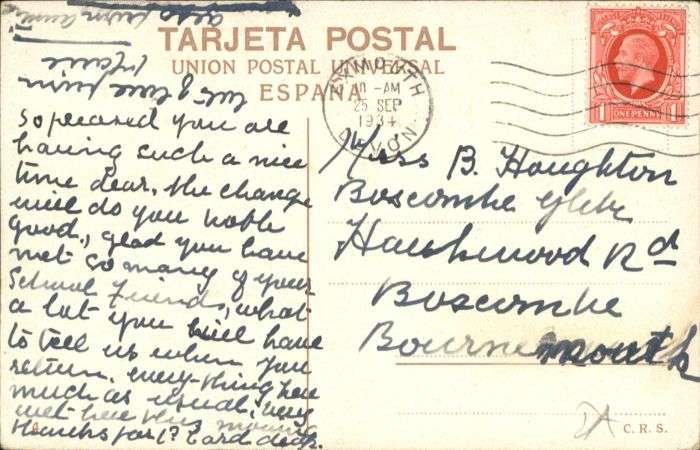 TARJETA POSTAL
UNION POSTAL UNIVERSAL
ESPAÑA
AXMOUTH
-AM
25 SEP
1934
DEVON
ONE PENNY
1 1
So pleased you are
having such a nice
time dear, the change
will do you both
good, glad you have
met so many of your
School friends, what
a lot you will have
to tell us when you
return. every-thing here
much as usual, very
wet here this morning
thanks for P. Card dear.
love from
Miss B. Houghton
Boscombe Glebe
Hawkwood Rd
Boscombe
Bournemouth
C.R.S.